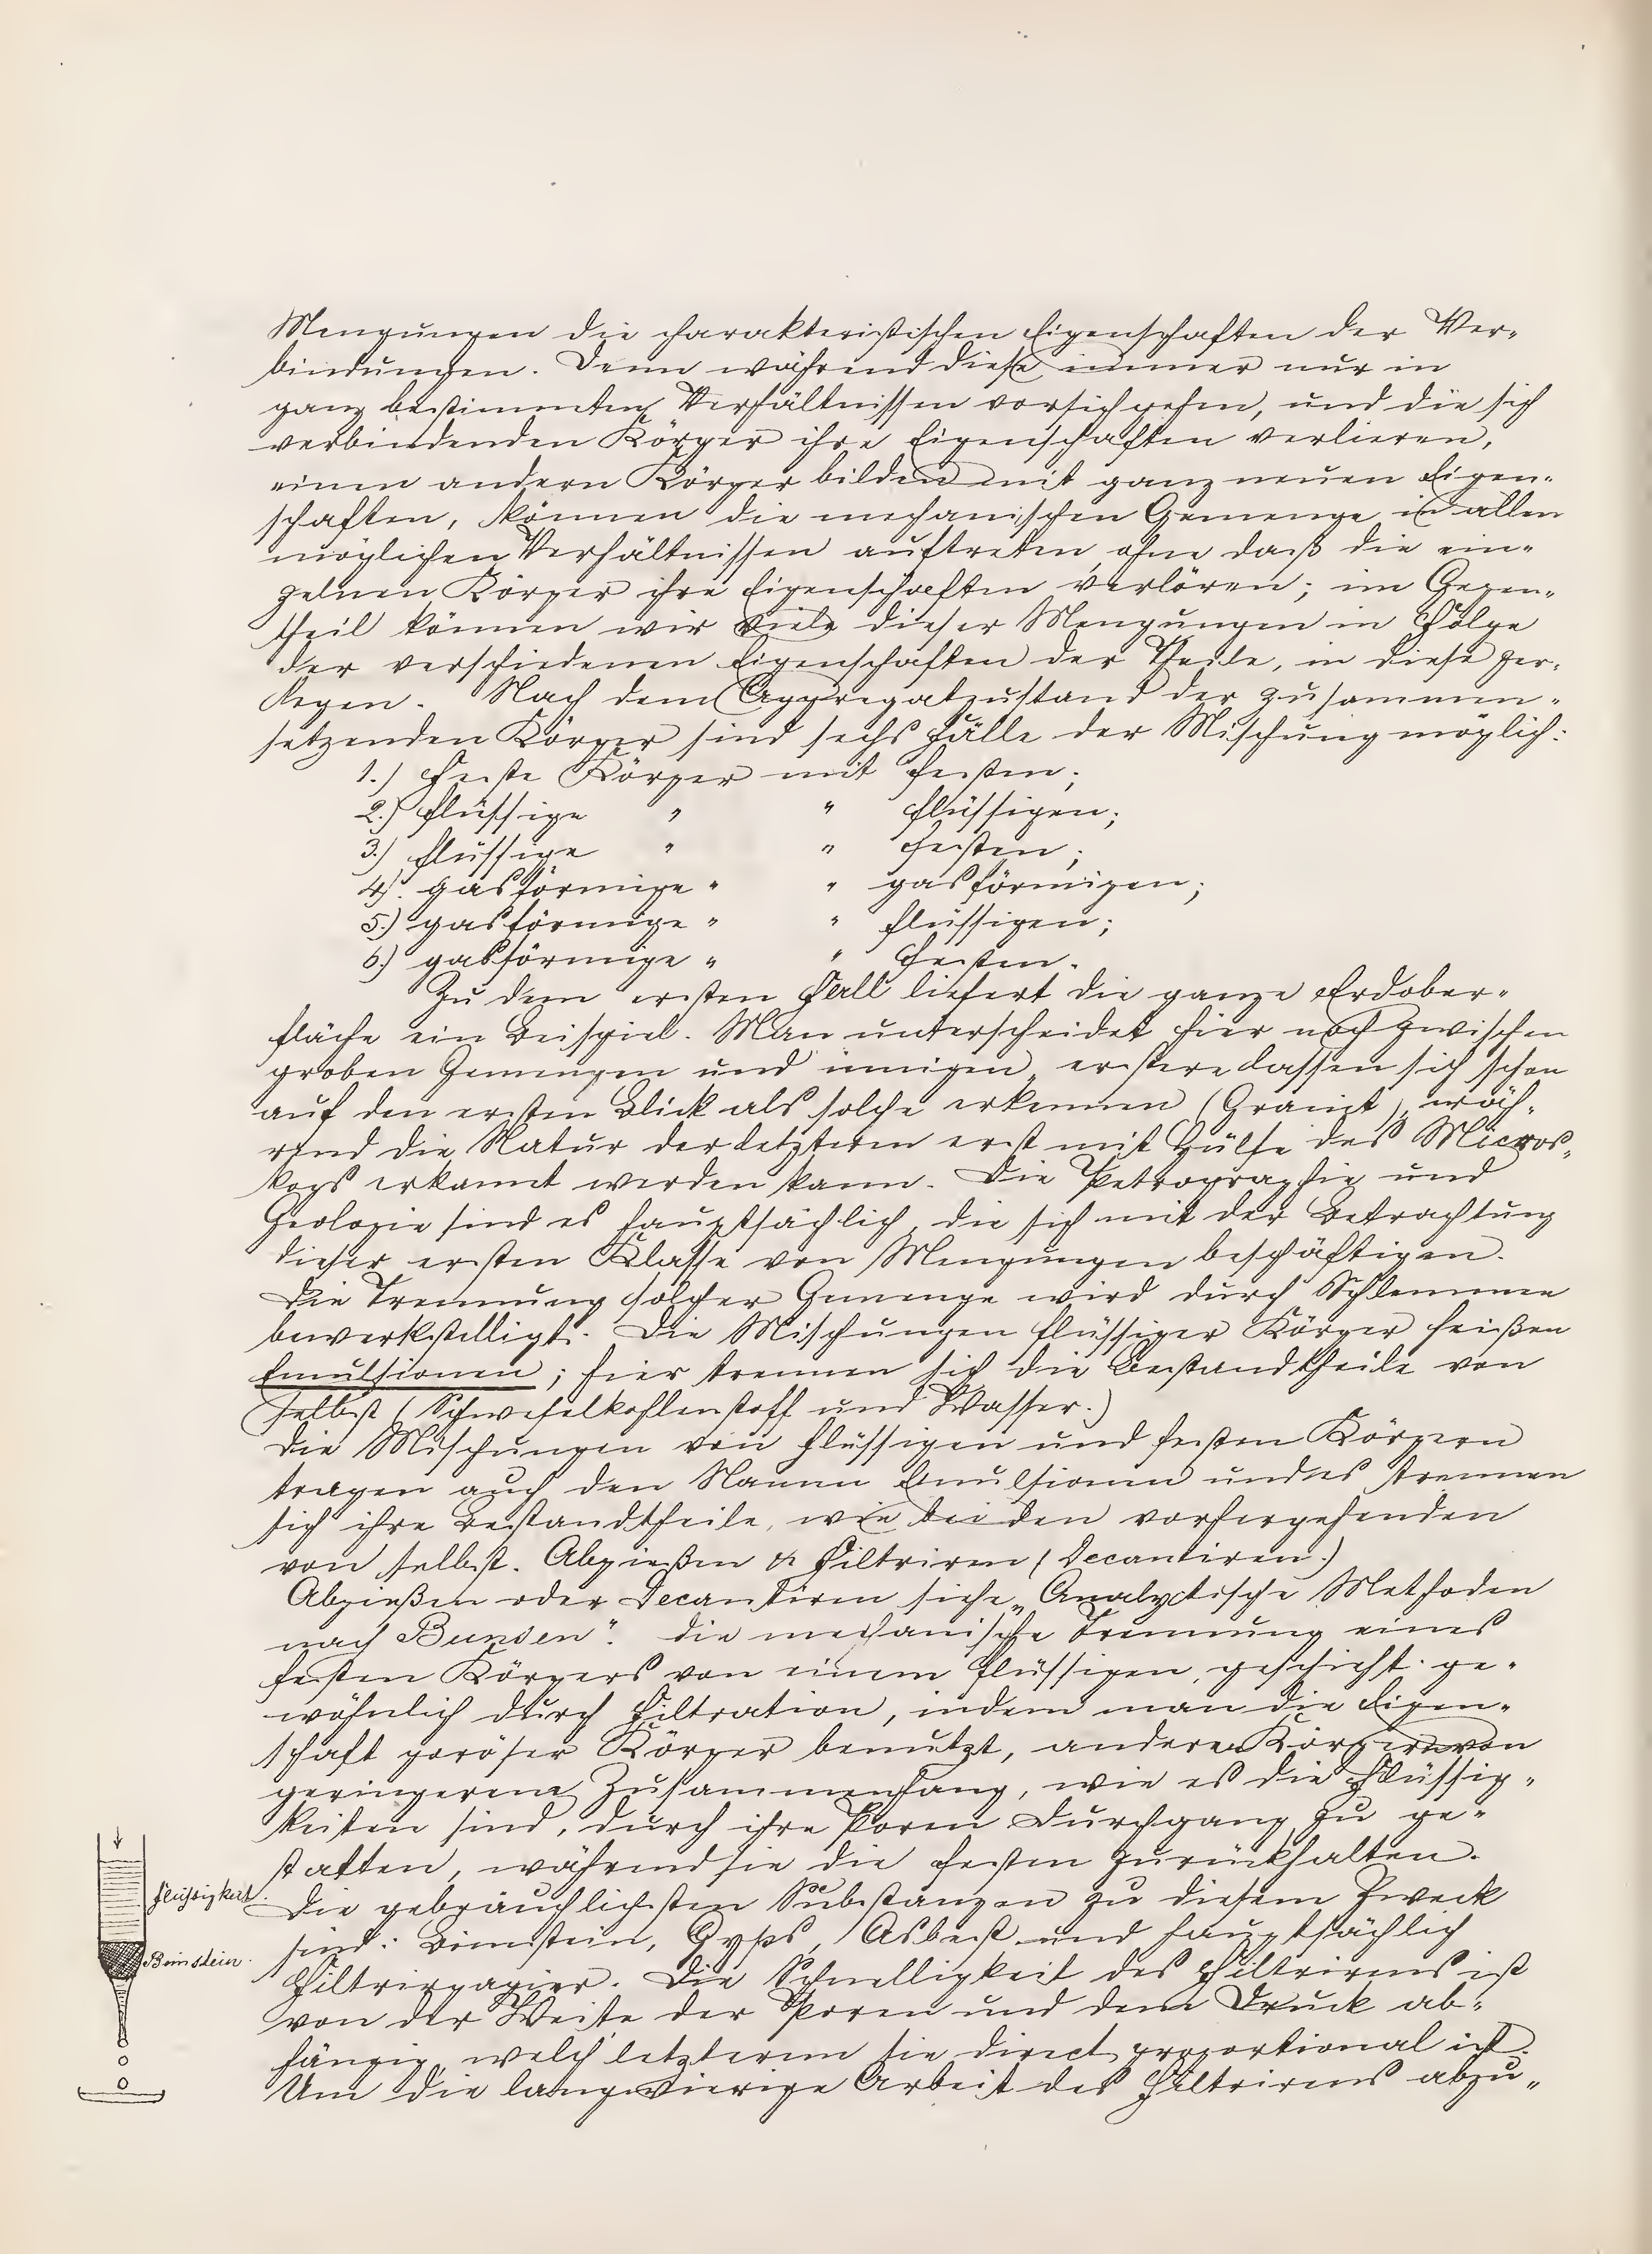 Mengungen die charakteristischen Eigenschaften der Ver-
bindungen. Denn während diese immer nur in
ganz bestimmten Verhältnissen vorsichgehen, und die sich
verbindenden Körper ihre Eigenschaften verlieren,
einen andern Körper bilden mit ganz neuen Eigen-
schaften, können die mechanischen Gemenge in allen
möglichen Verhältnissen auftreten, ohne daß die ein-
zelnen Körper ihre Eigenschaften verlören; im Gegen-
theil können wir viele dieser Mengungen in Folge
der verschiedenen Eigenschaften der Theile, in diese zer-
legen. Nach dem Aggregatzustand der zusammen-
setzenden Körper sind sechs Fälle der Mischung möglich:
1.) Feste Körper mit festen;
2.) flüssige " " flüssigen;
3.) flüssige " " festen;
4.) gasförmige " " gasförmigen;
5.) gasförmige " " flüssigen;
6.) gasförmige " " festen.
Zu dem ersten Fall liefert die ganze Erdober-
fläche ein Beispiel. Man unterscheidet hier noch zwischen
groben Gemengen und innigen, erstere lassen sich schon
auf den ersten Blick als solche erkennen (Granit), wäh-
rend die Natur der letzteren erst mit Hülfe des Micros-
kops erkannt werden kann. Die Petrographie und
Geologie sind es hauptsächlich, die sich mit der Betrachtung
dieser ersten Klasse von Mengungen beschäftigen.
Die Trennung solcher Gemenge wird durch Schlemmen
bewerkstelligt. Die Mischungen flüssiger Körper heißen
Emulsionen; hier trennen sich die Bestandtheile von
selbst (Schwefelkohlenstoff und Wasser.)
Die Mischungen von flüssigen und festen Körpern
tragen auch den Namen Emulsionen und es trennen
sich ihre Bestandtheile, wie bei den vorhergehenden
von selbst. Abgießen & Filtriren (Decantiren.)
Abgießen oder Decantiren siehe „Analytische Methoden
nach Bunsen". Die mechanische Trennung eines
festen Körpers von einem flüssigen, geschieht ge-
wöhnlich durch Filtration, indem man die Eigen-
schaft poröser Körper benutzt, anderen Körpern von
geringerem Zusammenhang, wie es die Flüssig-
keiten sind, durch ihre Poren Durchgang zu ge-
statten, während sie die festen zurückhalten.
Die gebräuchlichsten Substanzen zu diesem Zweck
sind: Bimstein, Gyps, Asbest und hauptsächlich
Filtrirpapier. Die Schnelligkeit des Filtrirens ist
von der Weite der Poren und dem Druck ab-
hängig, welch' letzterem sie direct proportional ist.
Um die langwierige Arbeit des Filtrirens abzu-
Flüssigkeit.
Bimstein.